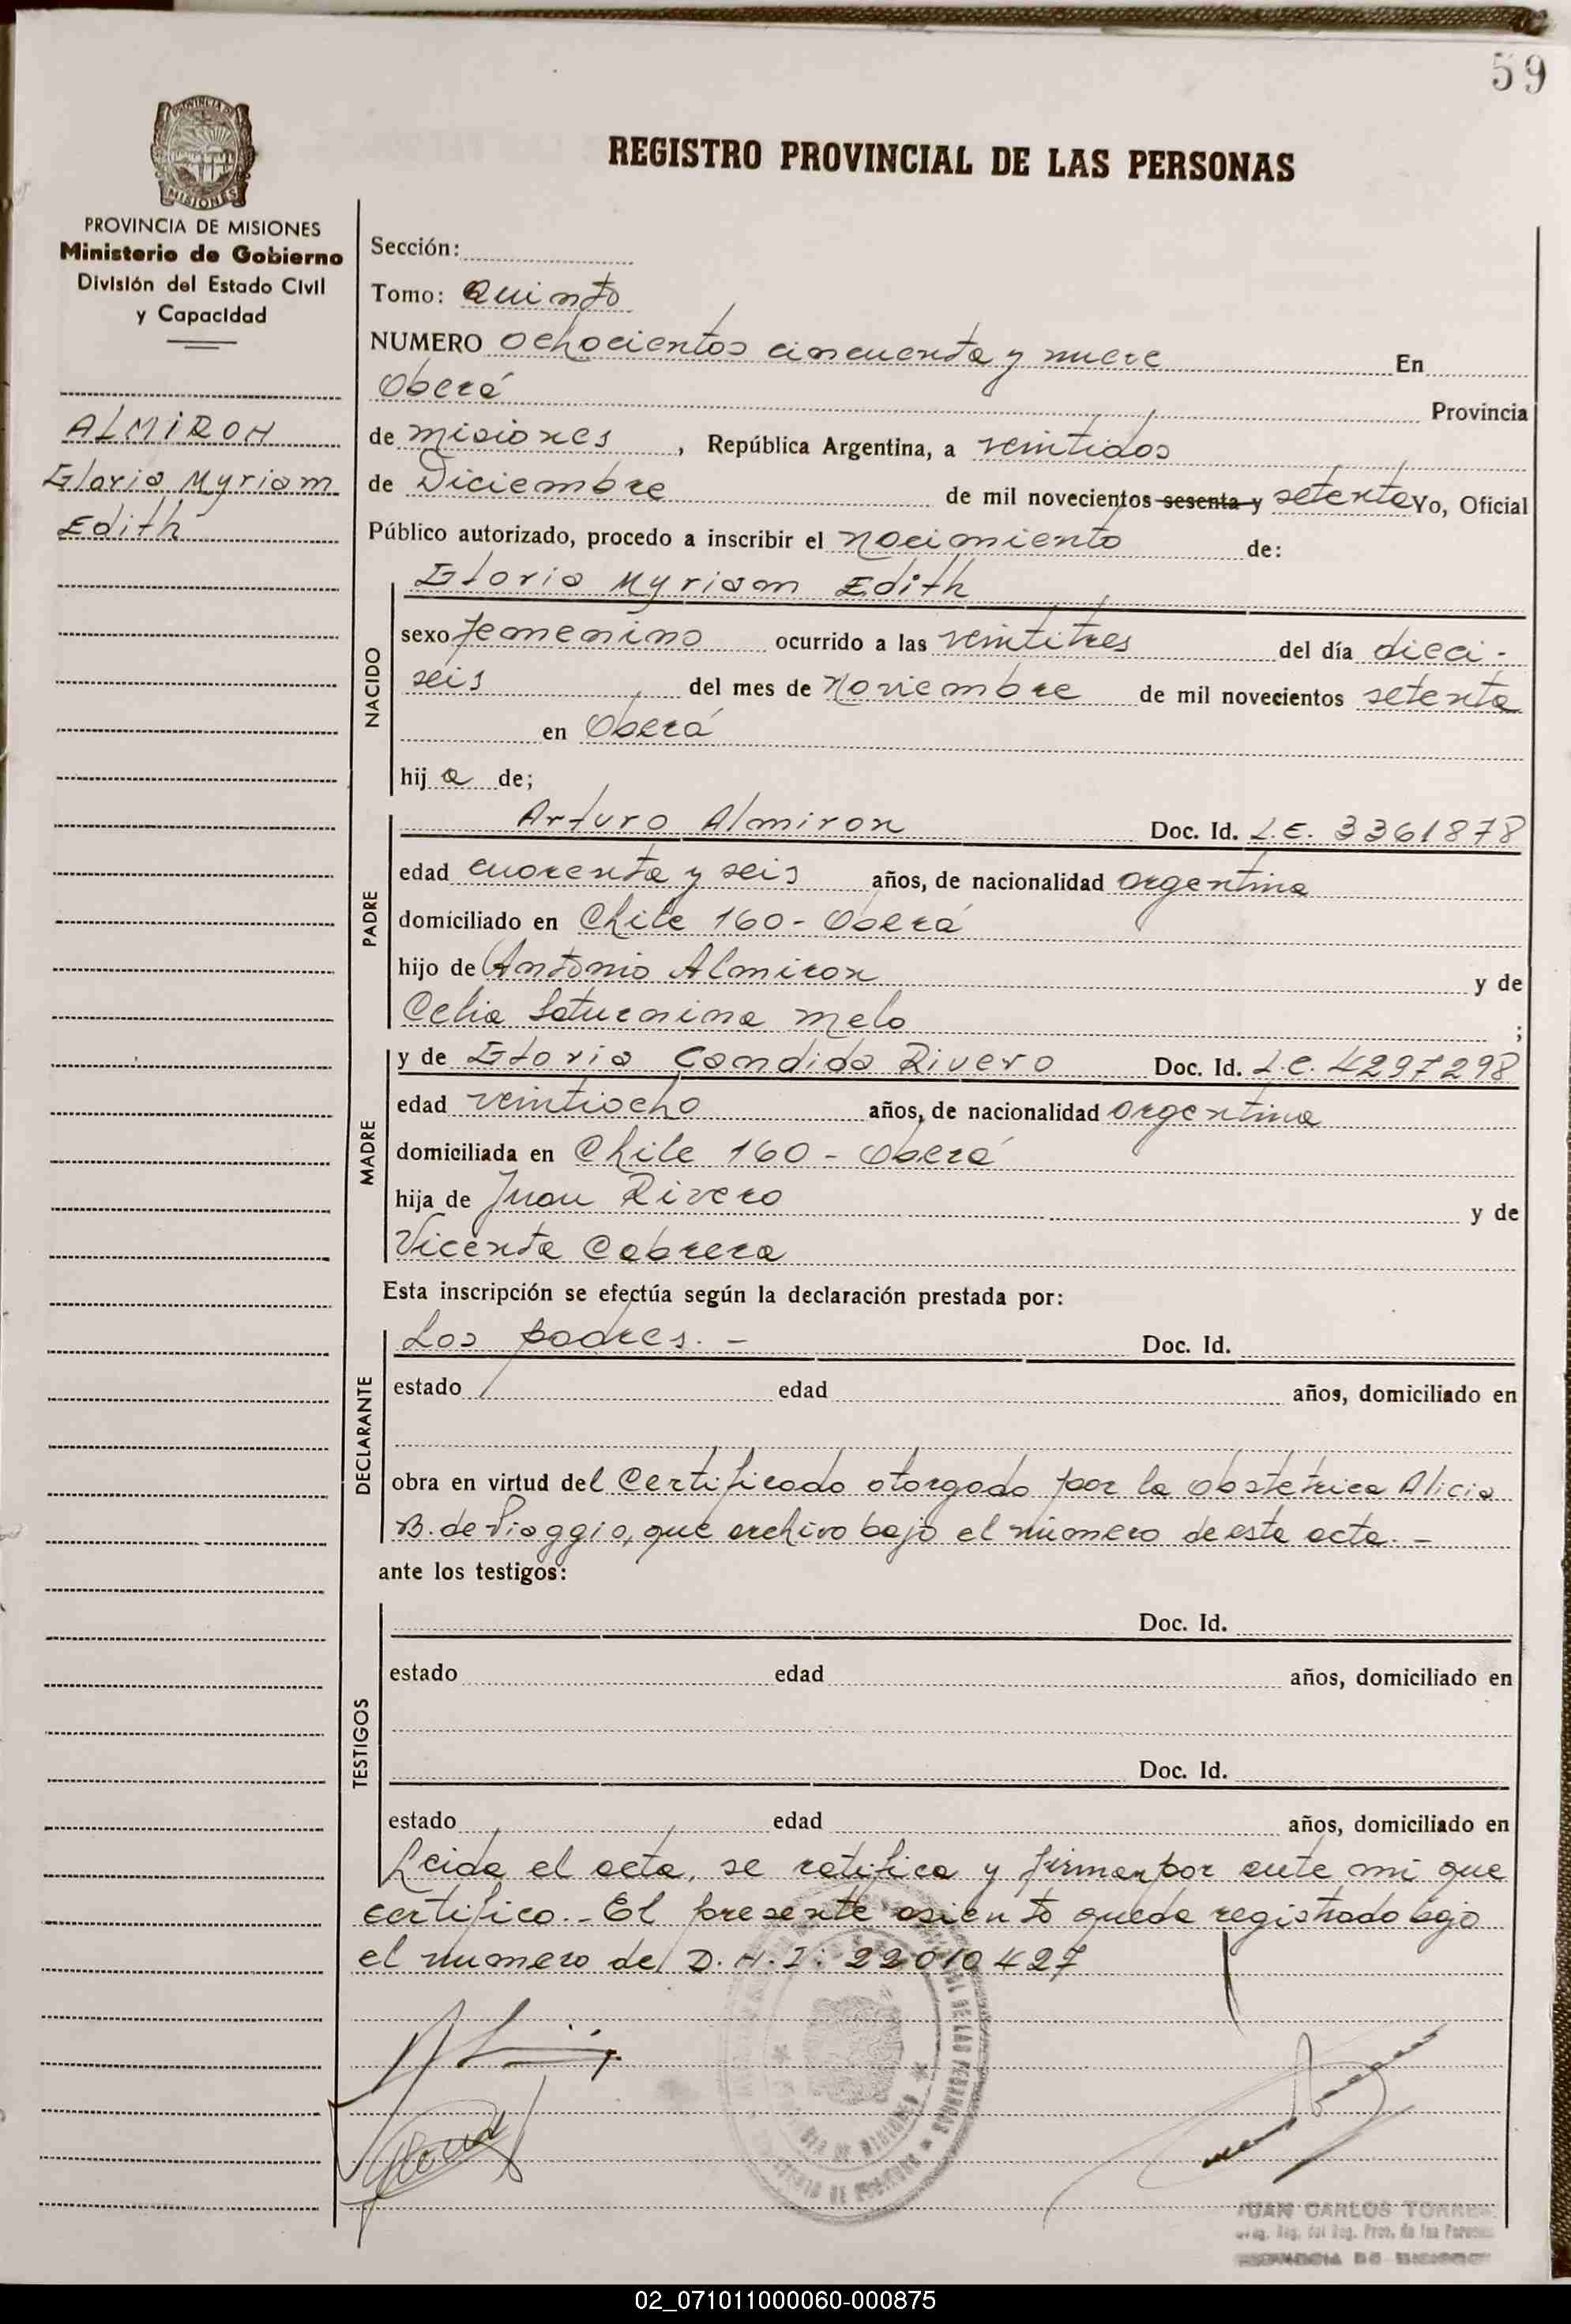 59
PROVINCIA DE
MISIONES
REGISTRO PROVINCIAL DE LAS PERSONAS
PROVINCIA DE MISIONES
Ministerio de Gobierno
División del Estado Civil
y Capacidad
ALMIRON
Gloria Myriam
Edith
Sección:
Tomo: Quinto
NUMERO Ochocientos cincuenta y nueve En
Oberá Provincia
de Misiones, República Argentina, a veintidos
de Diciembre de mil novecientos sesenta y setenta Yo, Oficial
Público autorizado, procedo a inscribir el nacimiento de:
NACIDO
Gloria Myriam Edith
sexo femenino ocurrido a las veintitres del día dieci-
seis del mes de Noviembre de mil novecientos setenta
en Oberá
hij a de;
PADRE
Arturo Almiron Doc. Id. L.E. 3361878
edad cuarenta y seis años, de nacionalidad argentina
domiciliado en Chile 160 - Oberá
hijo de Antonio Almiron y de
Celia Saturnina Melo ;
MADRE
y de Gloria Candida Rivero Doc. Id. L.C. 4297298
edad veintiocho años, de nacionalidad argentina
domiciliada en Chile 160 - Oberá
hija de Juan Rivero y de
Vicenta Cabrera
Esta inscripción se efectúa según la declaración prestada por:
DECLARANTE
Los padres. - Doc. Id.
estado edad años, domiciliado en
obra en virtud del Certificado otorgado por la obstetrica Alicia
B. de Piaggio, que archivo bajo el número de esta acta. -
ante los testigos:
TESTIGOS
Doc. Id.
estado edad años, domiciliado en
Doc. Id.
estado edad años, domiciliado en
Leida el acta, se ratifica y firman por ante mi que
certifico. - El presente asiento queda registrado bajo
el numero de D.N.I: 22010427
JUAN CARLOS TORRES
02_071011000060-000875